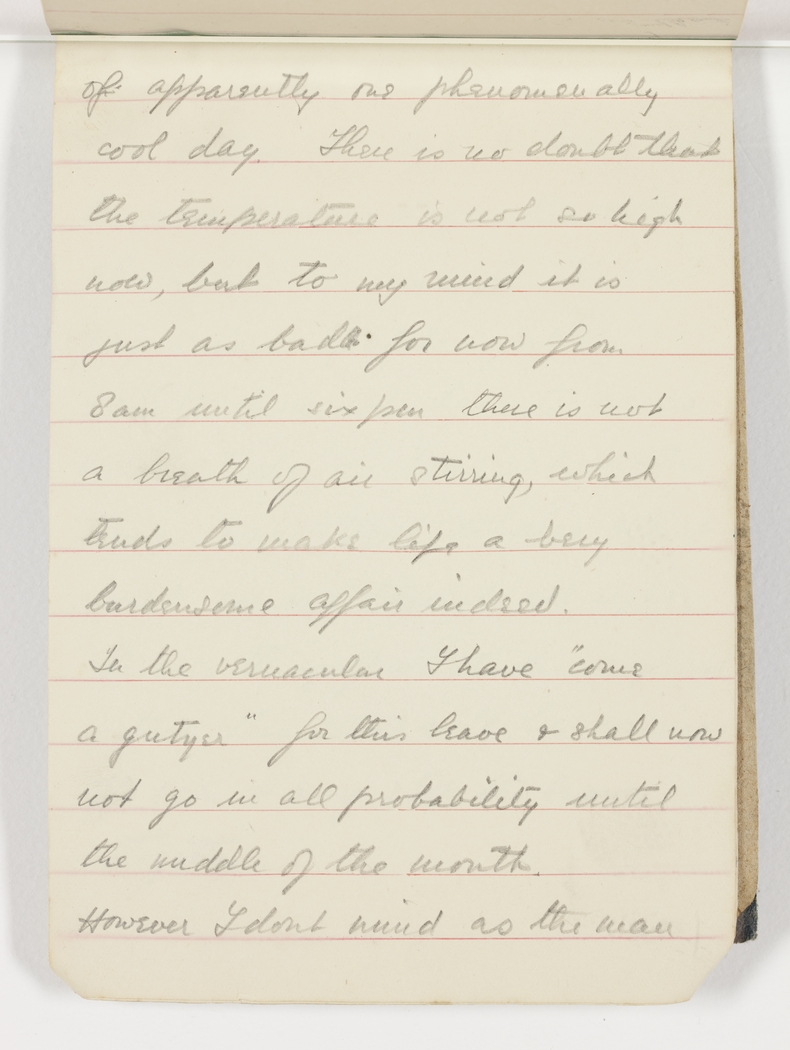 of apparently one phenomenally
cool day. There is no doubt that
the temperature is not so high
now, but to my mind it is
just as bad. for now from
8am until six pm there is not
a breath of air stirring, which
tends to make life a very
burdensome affair indeed.
In the vernacular I have "come
a gutyer" for this leave & shall now
not go in all probability until
the middle of the month.
However I dont mind as the man